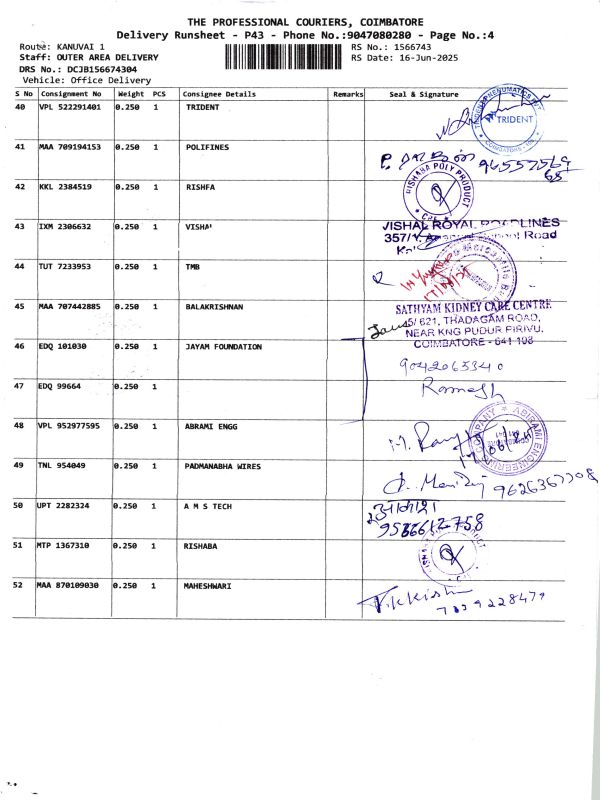 THE PROFESSIONAL COURIERS, COIMBATORE
Delivery Runsheet - P43 - Phone No.:9047080280 - Page No.:4
Route: KANUVAI 1 RS No.: 1566743
Staff: OUTER AREA DELIVERY RS Date: 16-Jun-2025
DRS No.: DCJB156674304
Vehicle: Office Delivery
S No Consignment No Weight PCS Consignee Details Remarks Seal & Signature
40 VPL 522291401 0.250 1 TRIDENT
TRIDENT
41 MAA 709194153 0.250 1 POLIFINES
42 KKL 2384519 0.250 1 RISHFA
RISHABA POLY PRODUCT
43 IXM 2306632 0.250 1 VISHA'
VISHAL ROYAL ROADLINES
44 TUT 7233953 0.250 1 TMB
45 MAA 707442885 0.250 1 BALAKRISHNAN
SATHYAM KIDNEY CARE CENTRE
5/621, THADAGAM ROAD,
NEAR KNG PUDUR PIRIVU,
COIMBATORE - 641 108
46 EDQ 101030 0.250 1 JAYAM FOUNDATION
9042065340
47 EDQ 99664 0.250 1
Ramesh
48 VPL 952977595 0.250 1 ABRAMI ENGG
ABIRAMI ENGINEERING COMPANY
49 TNL 954049 0.250 1 PADMANABHA WIRES
9626367708
50 UPT 2282324 0.250 1 A M S TECH
51 MTP 1367310 0.250 1 RISHABA
52 MAA 870109030 0.250 1 MAHESHWARI